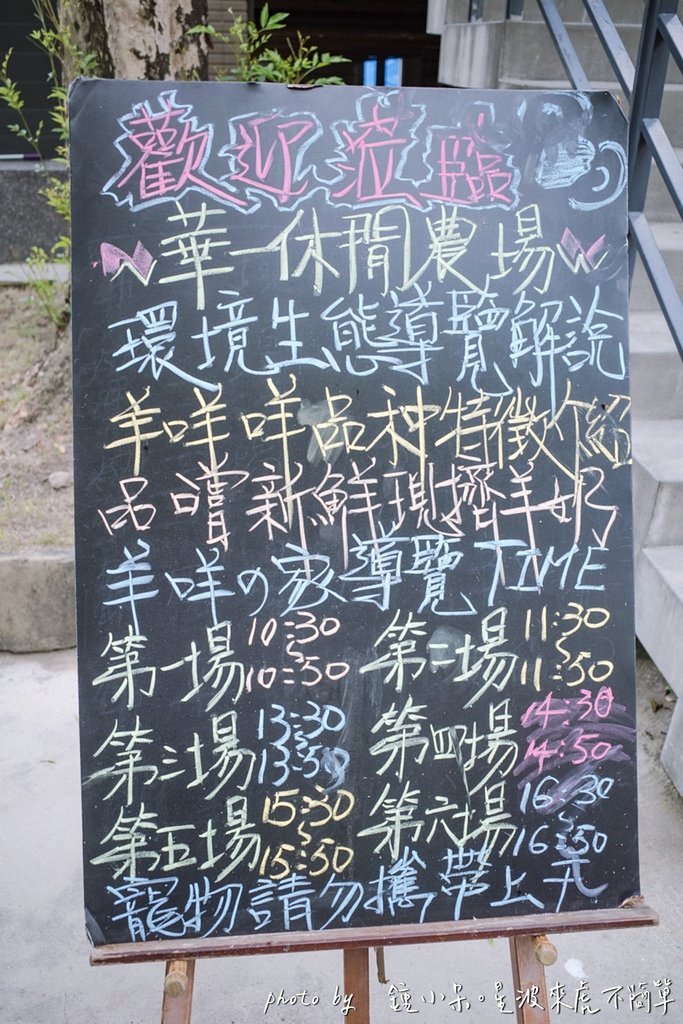 歡迎蒞臨
華一休閒農場
環境生態導覽解說
羊咩咩品種特徵介紹
品嚐新鮮現擠羊奶
羊咩の家導覽TIME
第一場 10:30~10:50 第二場 11:30~11:50
第三場 13:30~13:50 第四場 14:30~14:50
第五場 15:30~15:50 第六場 16:30~16:50
寵物請勿攜帶上
photo by 鐘小呆。星波來虎不隨單